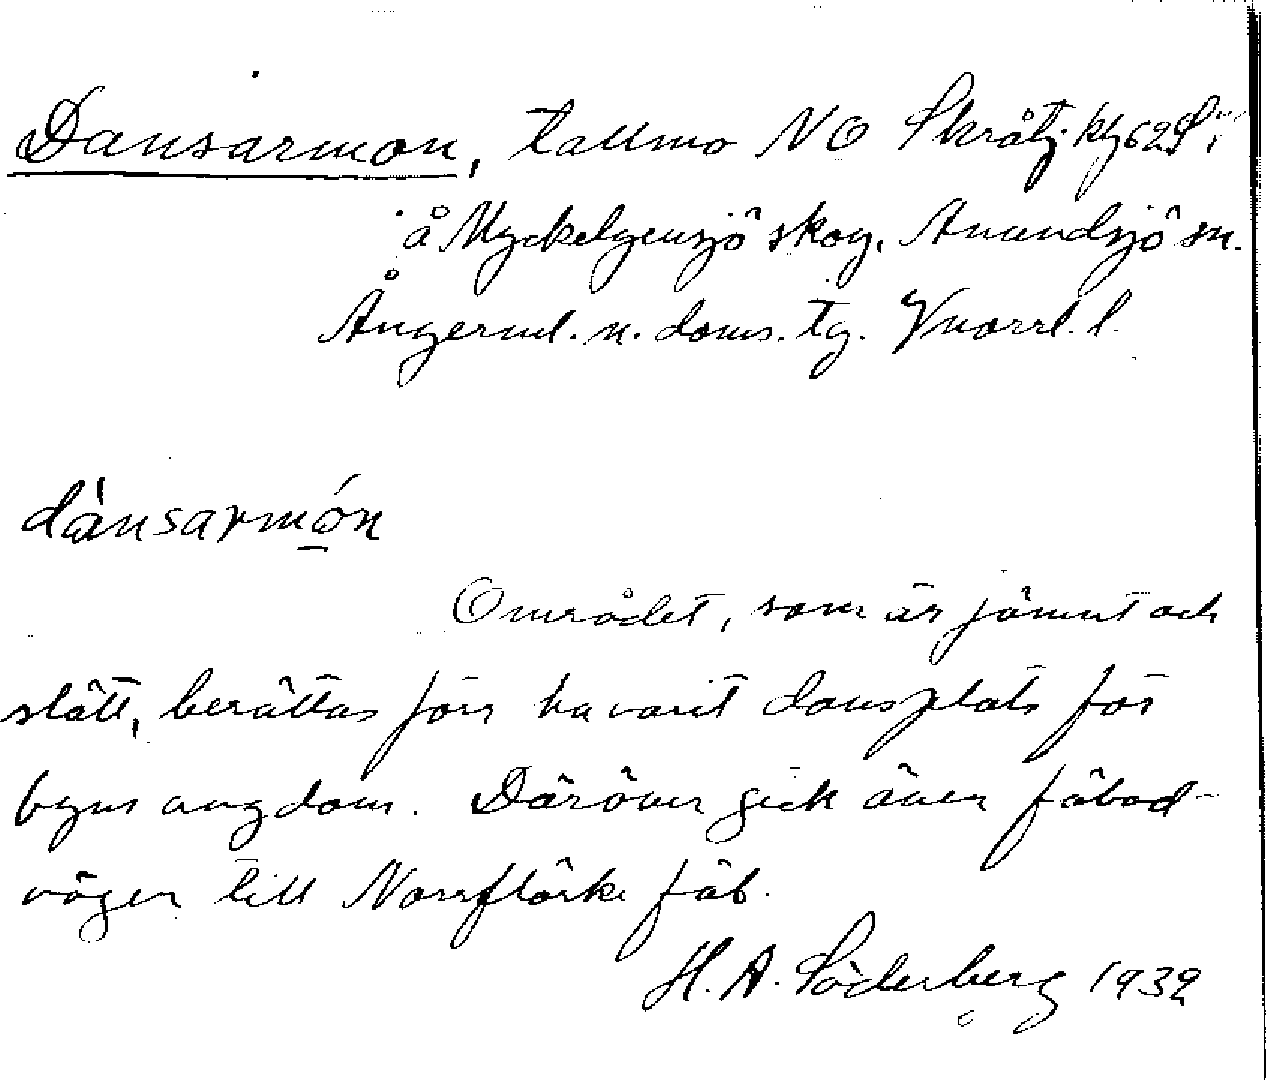 Dansarmon, tallmo NO Skråtj.
å Myckelgensjö skog, Anundsjö sn.
Ångerml. n. doms. tg. Vnorrl. l.
dànsarmón
Området, som är jämnt och
slätt, berättas förr ha varit dansplats för
byns ungdom. Däröver gick även fäbod-
vägen till Norrflärke fäb.
H. A. Söderberg 1932